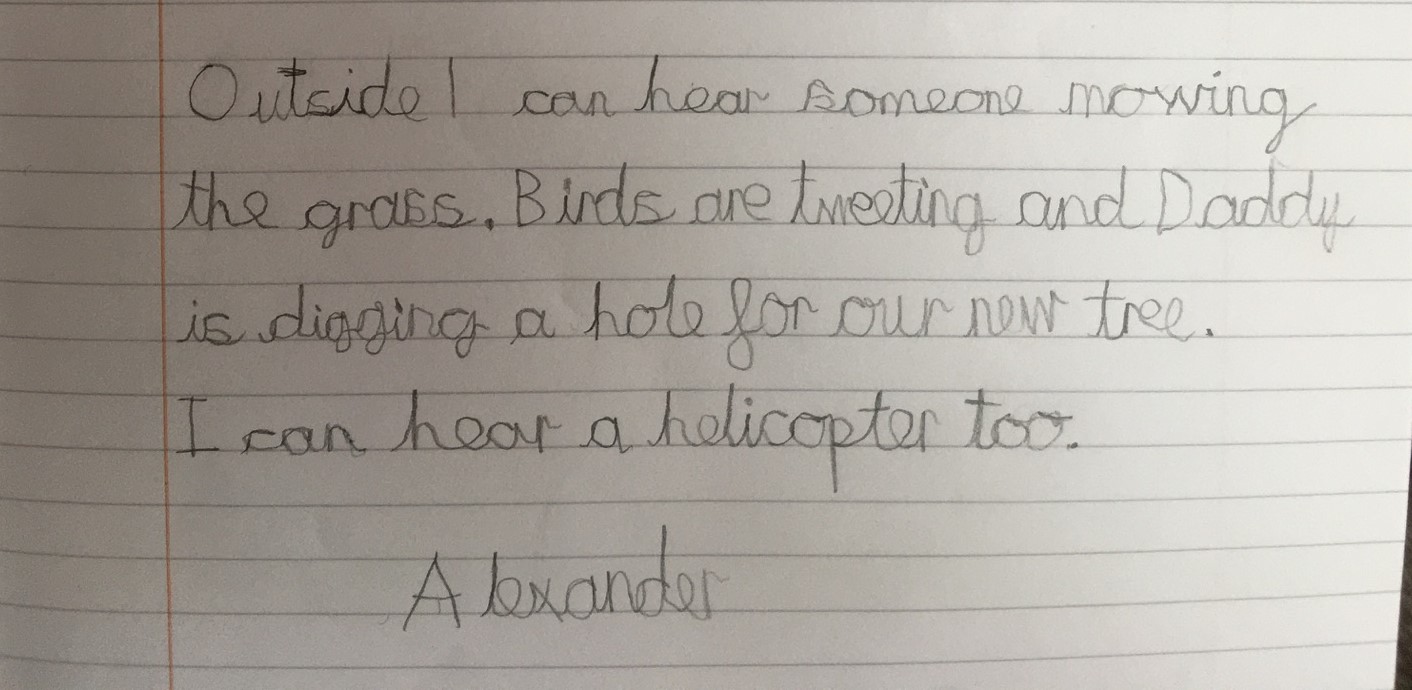 Outside I can hear someone mowing
the grass. Birds are tweeting and Daddy
is digging a hole for our new tree.
I can hear a helicopter too.
Alexander